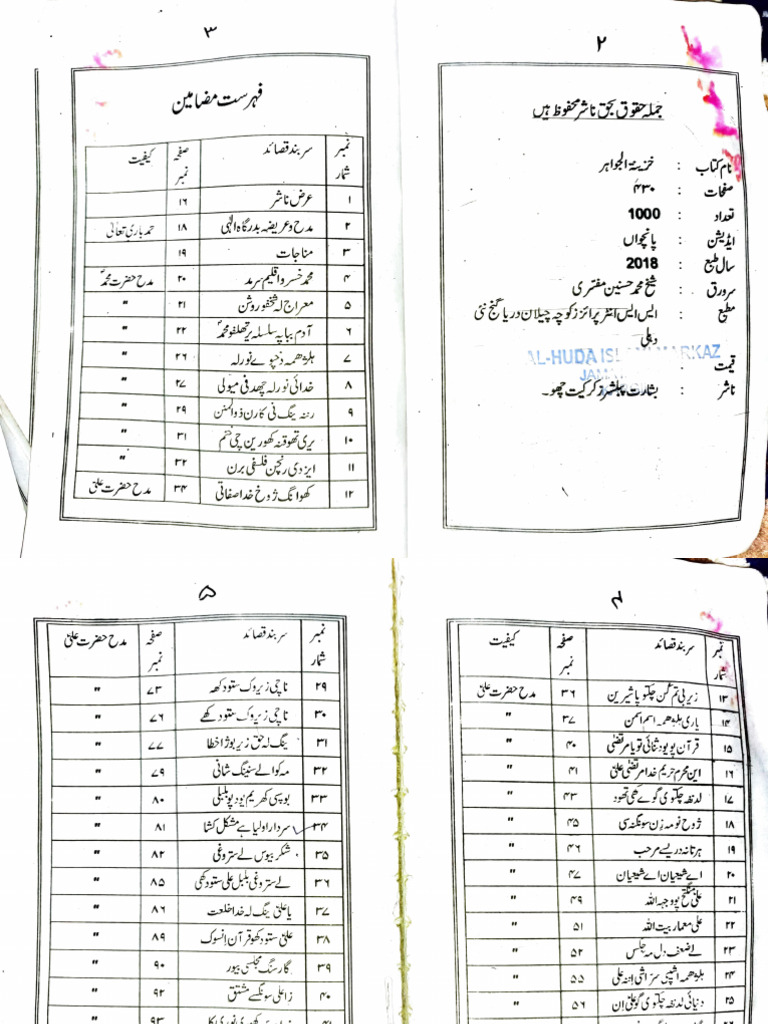 ۲
جملہ حقوق بحق ناشر محفوظ ہیں
نام کتاب : خزینۃ الجواہر
صفحات : ۴۳۰
تعداد : 1000
ایڈیشن : پانچواں
سال طبع : 2018
سرورق : شیخ محمد حسنین مفتری
مطبع : ایس ایس انٹر پرائزز کوچہ چیلان دریا گنج نئی
دہلی
AL-HUDA ISL MARKAZ
قیمت :
ناشر : بشارت پبلشرز کرکیت چھو۔
۳
فہرست مضامین
نمبر شمار سر بند قصائد صفحہ نمبر کیفیت
۱ عرض ناشر ۱۶
۲ مدح و عریضہ بدرگاہ الٰہی ۱۸ حمد باری تعالیٰ
۳ مناجات ۱۹
۴ محمد خسرو اقلیم سرمد ۲۰ مدح حضرت محمدؐ
۵ معراج لہ شخفور وشن ۲۱ "
۶ آدم بیاپہ سلسلہ یر تھلفو محمدؐ ۲۲ "
۷ بلژھمہ ذخپوے نور لہ ۲۶ "
۸ خدائی نور لہ چھد فی میولی ۲۷ "
۹ رننہ ینگ نی کارن ذوالمنن ۲۹ "
۱۰ یری تھوقنہ کھورین چی ختم ۳۱ "
۱۱ ایزدی رنچن فلسفی برن ۳۲ "
۱۲ کھوانگ ژوخ خدا صفاتی ۳۴ مدح حضرت علیؑ
۴
نمبر شمار سر بند قصائد صفحہ نمبر کیفیت
۱۳ زیر بی تم گن چکتو یا شیرین ۳۶ مدح حضرت علیؑ
۱۴ یاری بلژھمہ اسم اسمن ۳۷ "
۱۵ قرآن پو یود ثنائی تو یا مرتضیٰ ۴۰ "
۱۶ این محرم حریم خدا مرتضیٰ علیؑ ۴۱ "
۱۷ لدظہ چکتوی گوے کھی تھود ۴۳ "
۱۸ ژوخ نومہ زن سونگنہ سی ۴۵ "
۱۹ ہرتانہ دریسے مرحب ۴۶ "
۲۰ اے شیعیان اے شیعیان ۴۷ "
۲۱ علی منکخ پو وجہہ اللہ ۴۹ "
۲۲ علی معمار بیت اللہ ۵۱ "
۲۳ لے ضعف دل مہ چلس ۵۲ "
۲۴ بلژھمہ اشپی سزاشی انہ علی ۵۵ "
۲۵ دنیائی لدظہ چکتوی گو علی ان ۵۶ "
۵
نمبر شمار سر بند قصائد صفحہ نمبر مدح حضرت علیؑ
۲۹ ناچی زیروک ستود کھہ ۷۳ "
۳۰ ناچی زیروک ستود کھے ۷۶ "
۳۱ ینگ لہ حق زیر بو ژا خطا ۷۷ "
۳۲ مہ کوالے سنینگ شانی ۷۹ "
۳۳ بوپسی کھریم یود پو بلبلی ۸۰ "
۳۴ سردار اولیا ہے مشکل کشا ۸۱ "
۳۵ شکر بیوس لے ستروغی ۸۲ "
۳۶ لے ستروغی بلبل علی ستود کھی ۸۵ "
۳۷ یا علیؑ ینگ لہ خدا خلعت ۸۶ "
۳۸ علیؑ ستود کھو قرآن اِنسوک ۸۹ "
۳۹ گارسنگ مجلسی بیور ۹۰ "
۴۰ زاعلی سونگسے مشتق ۹۲ "
۹۳ "